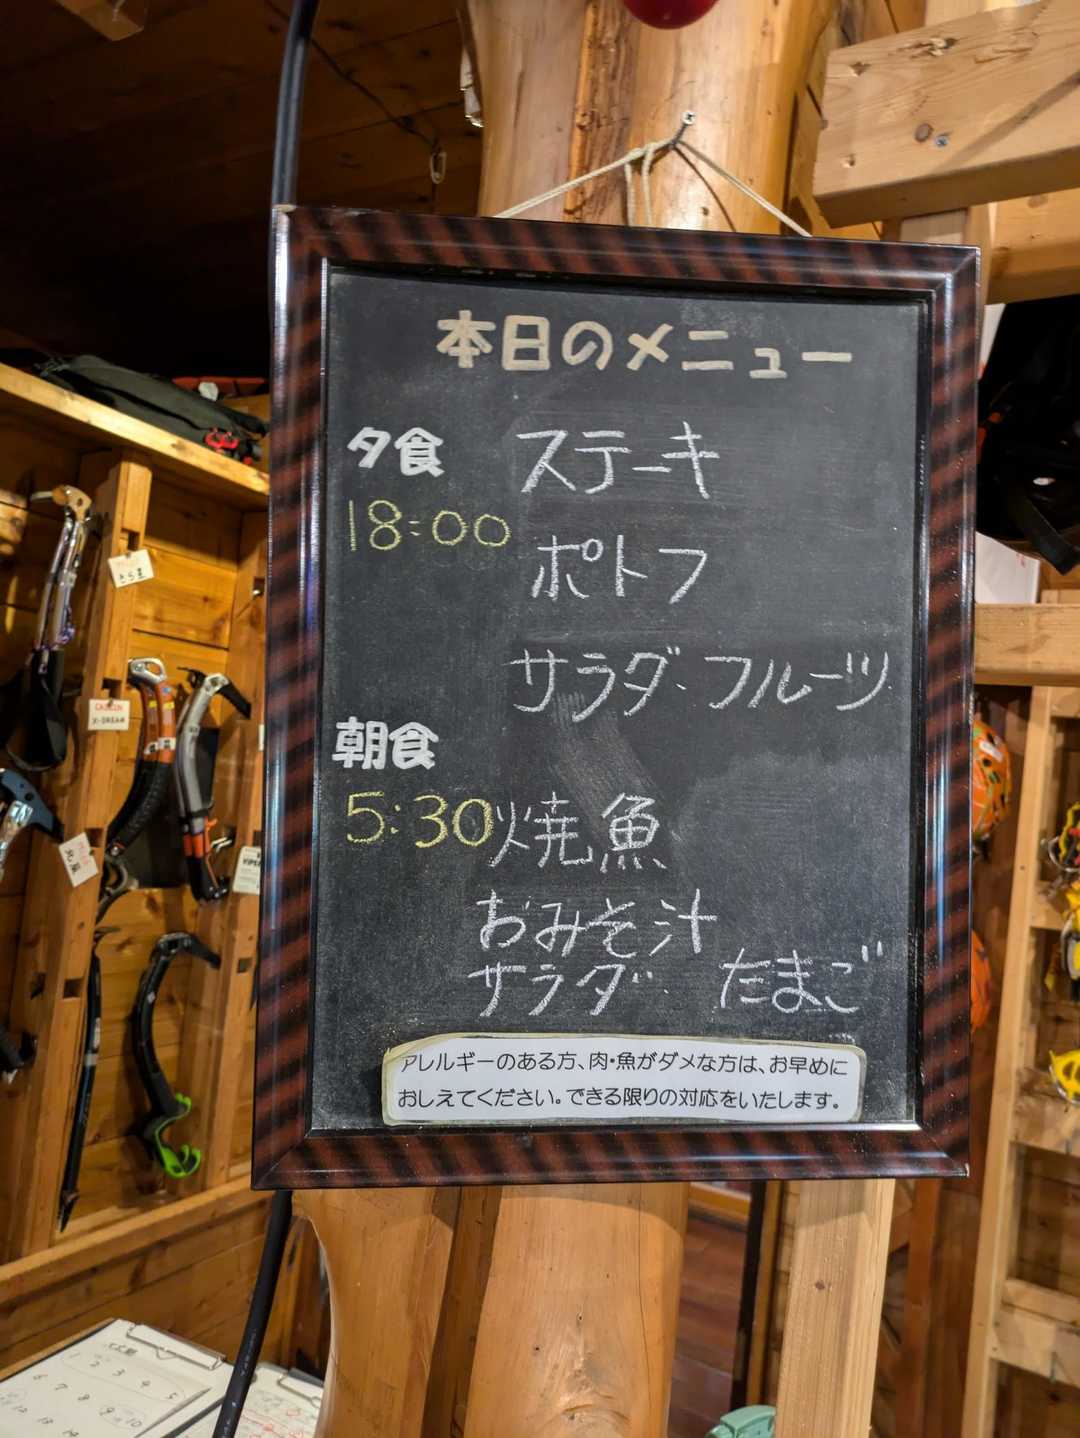 本日のメニュー
夕食 ステーキ
18:00 ポトフ
サラダ・フルーツ
朝食
5:30 焼魚
おみそ汁
サラダ・ たまご
アレルギーのある方、肉・魚がダメな方は、お早めに
おしえてください。できる限りの対応をいたします。
とらま
CASSIN
X-DREAM
VIPER
1 2 3 4 5
6 7 8 9 10
12 13 14